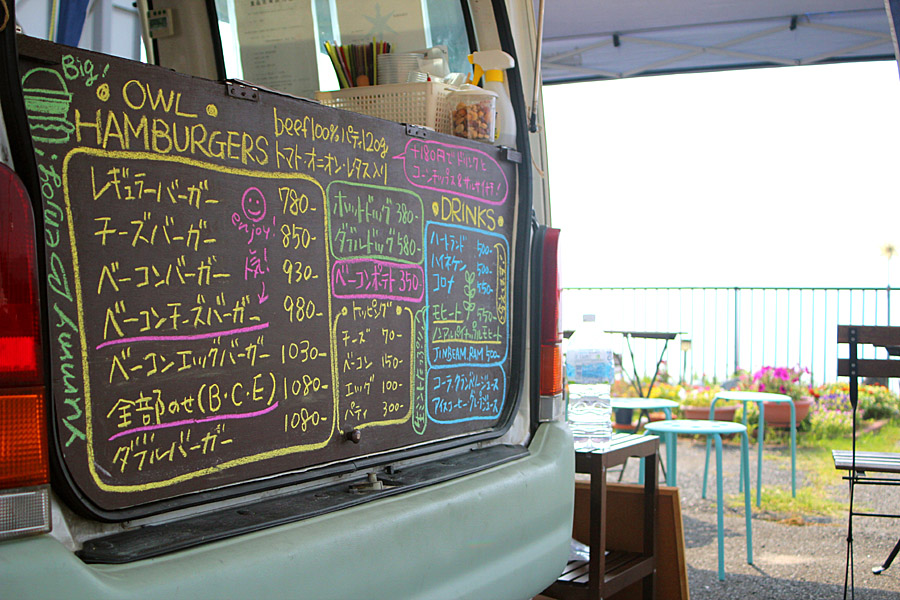 Big!
for your yummy
OWL
HAMBURGERS
beef100%パティ120g
トマト・オニオン・レタス入り
レギュラーバーガー 780-
チーズバーガー 850-
ベーコンバーガー 930-
ベーコンチーズバーガー 980-
ベーコンエッグバーガー 1030-
全部のせ(B・C・E) 1080-
ダブルバーガー 1080-
enjoy!
人気!
+180円でドリンクと
コーンチップス&サルサ付き!
ホットドッグ 380-
ダブルドッグ 580-
ベーコンポテト 350
トッピング
チーズ 70-
ベーコン 150-
エッグ 100-
パティ 300-
DRINKS
ハートランド 500-
ハイネケン 500-
コロナ 550-
モヒート 550-
ノンアルパイナップルモヒート
JINBEAM.RAM 500-
コーラ・クランベリージュース
アイスコーヒー・グレープジュース